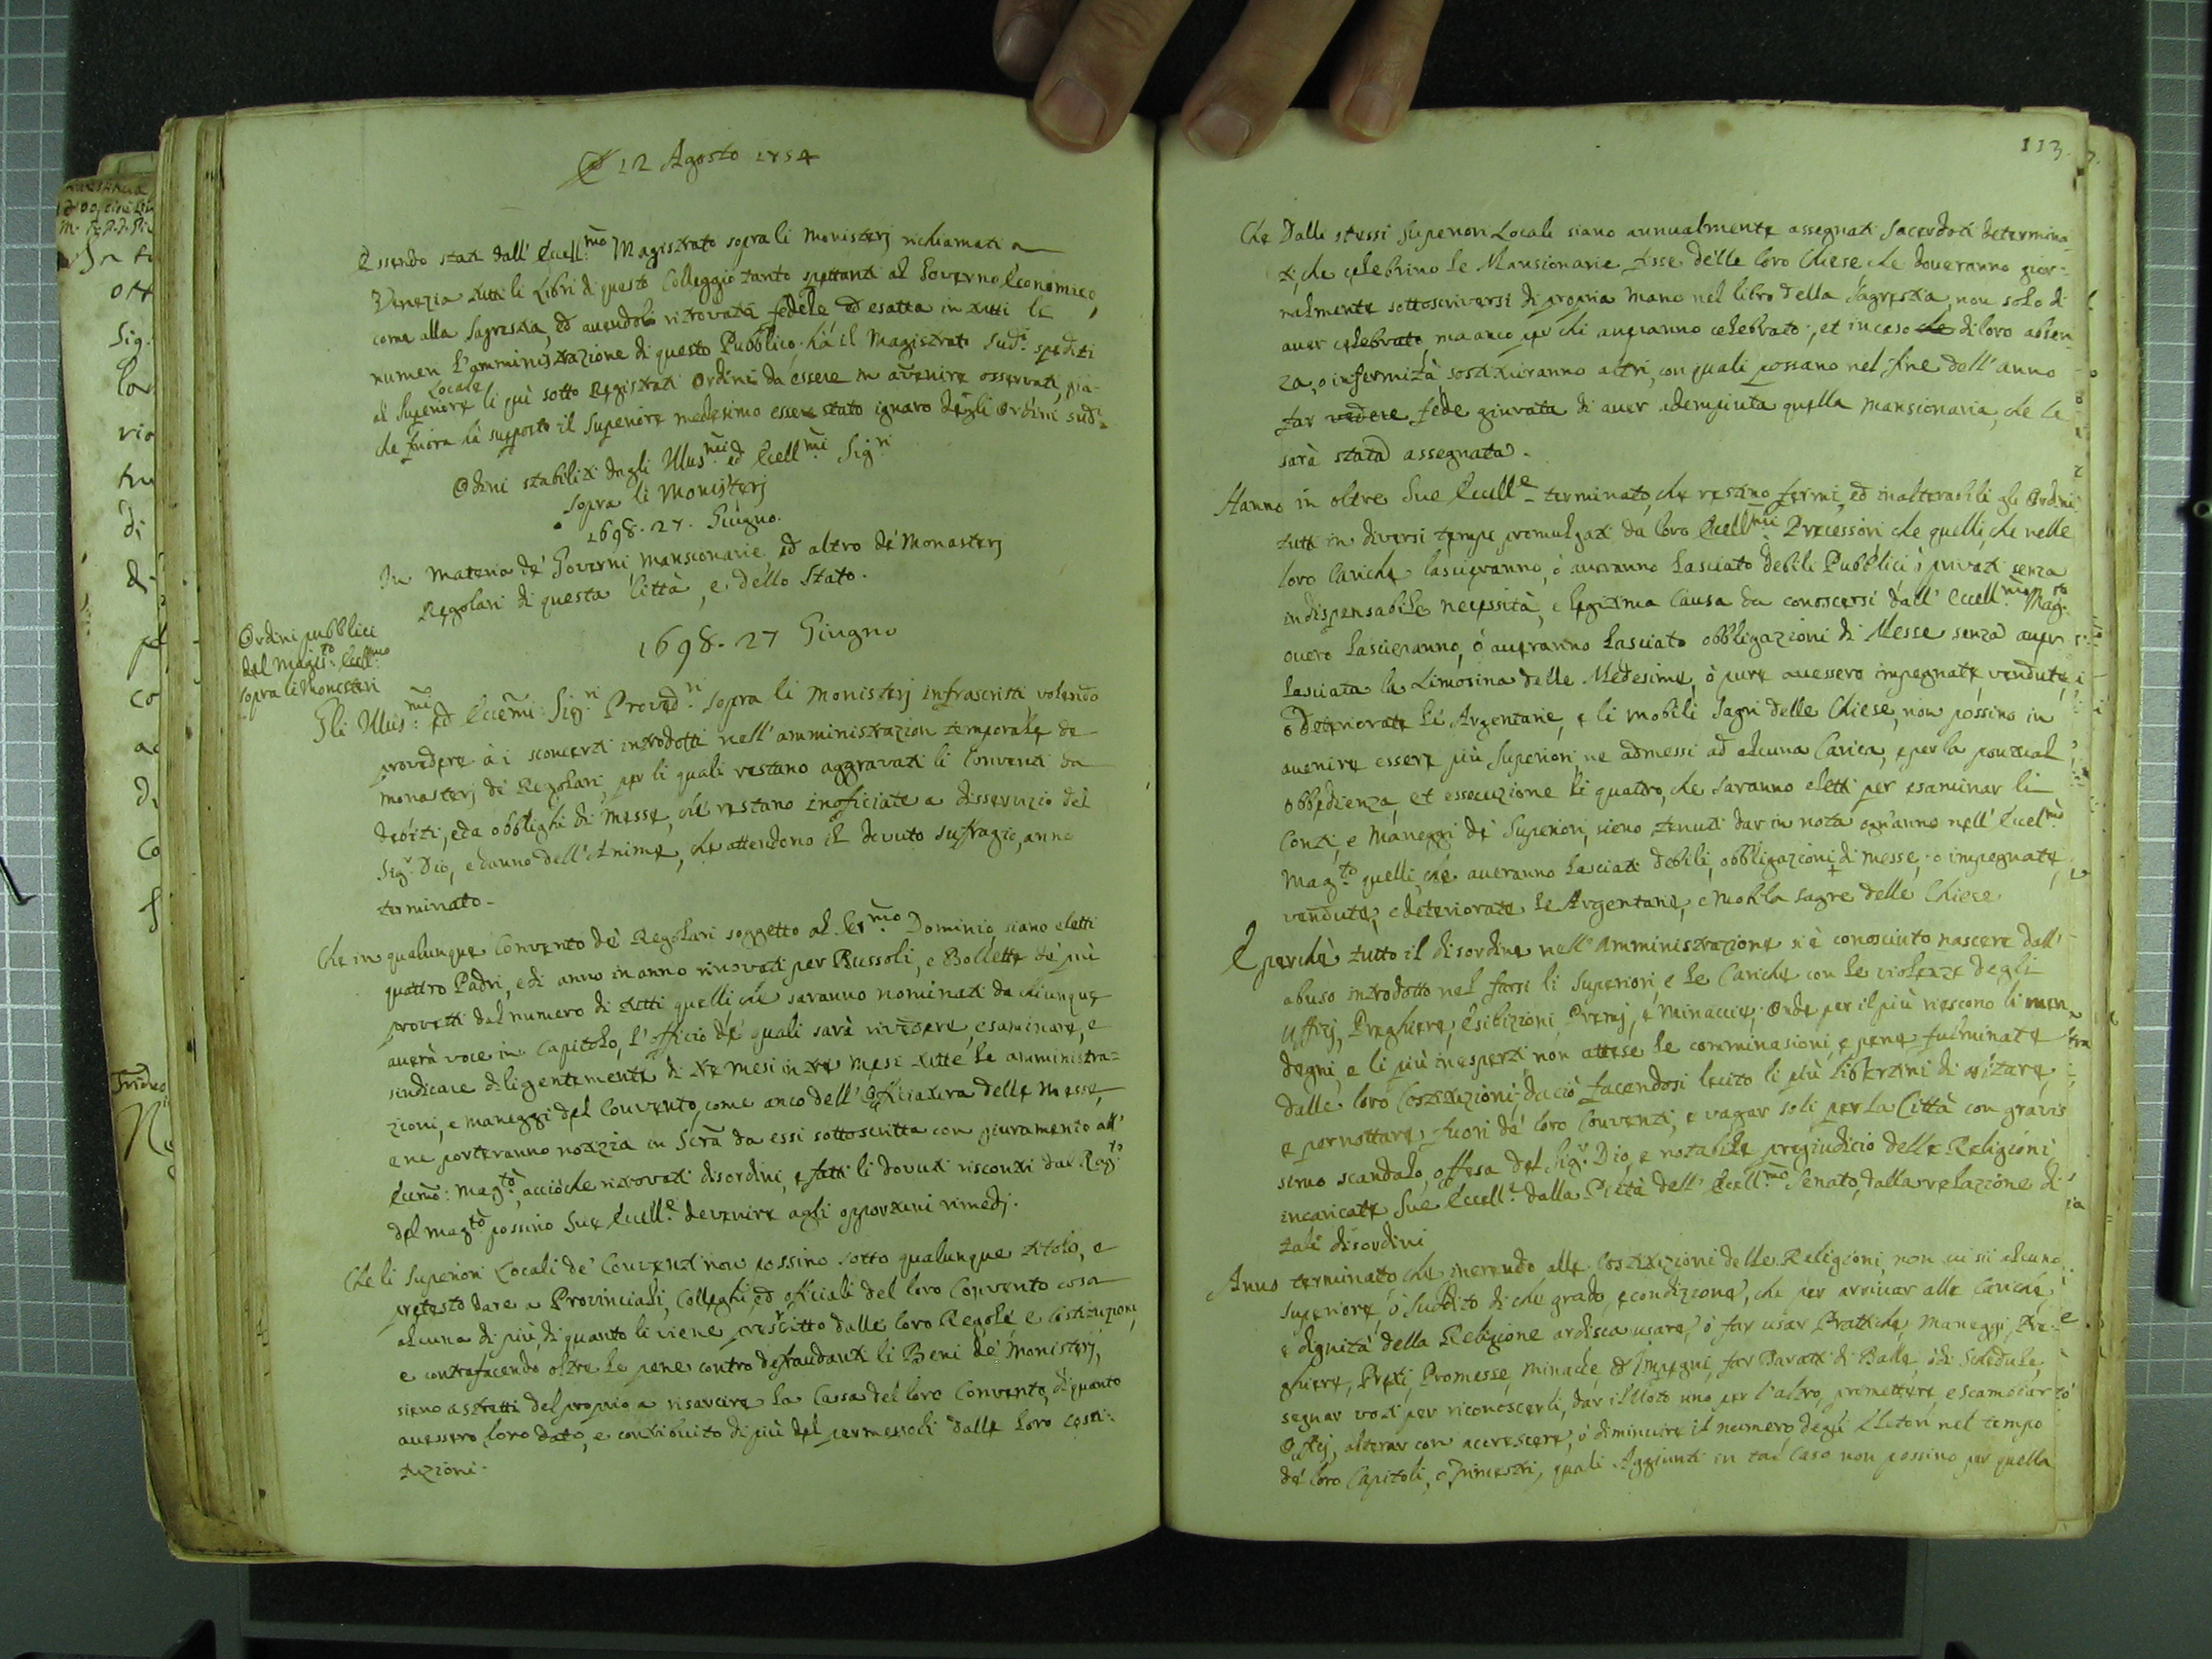 12 Agosto 1754
Essendo stati dall' Eccell:mo Magistrato sopra li Monisterj richiamati a
Venezia tutti li Libri di questo Colleggio tanto spettanti al Governo Economico,
come alla Sagrestia, ed avendoli ritrovata fedele ed esatta in tutti li
numeri l'amministrazione di questo Pubblico, hà il Magistrato sud:o spediti
al Superiore Locale li quì sotto Registrati Ordini da essere in avenire osservati, già-
che fuora hà supposto il Superiore medesimo essere stato ignaro degli Ordini sud:i
Odini stabiliti dagli Illus:mi ed Eccell:mi Sig:ri
sopra li Monisterj
1698. 27. Giugno.
In materia de' Governi Mansionarie ed altro de' Monasterj
Regolari di questa Città, e dello Stato.
1698. 27 Giugno
Ordini pubblici
del Magis:to Eccell:mo
sopra li Monesteri
Gli Illus:mi ed Eccemi: Sig:ri Proved:ri sopra li Monisterj infrascritti volendo
provedere à i sconcerti introdotti nell' amministrazion temporale de
Monasterj di Regolari, per li quali restano aggravati li Conventi da
debiti, e da obblighi di Messe, che restano inoficiate a disservizio del
Sig:r Dio, e danno dell' Anime, che attendono il dovuto suffragio, anno
terminato.
Che in qualunque Convento de' Regolari soggetto al Ser:mo Dominio siano eletti
quattro Padri, e di anno in anno rinovati per Bussoli, e Bollette de' più
provetti dal numero di tutti quelli, che saranno nominati da chiunque
averà voce in Capitolo, l'officio de' quali sarà rivedere, esaminare, e
sindicare diligentemente di tre mesi in tre mesi tutte le amministra-
zioni, e maneggi del Convento, come anco dell' Officiatura delle Messe,
e ne porteranno notizia in Scr̃a da essi sottoscritta con giuramento all'
Eccemo: Mag:to, acciòche ritrovati disordini, e fatti li dovuti riscontri dal Rag:to
del Mag:to possino Sue Eccell:e devenire agli opportuni rimedj.
Che li Superiori Locali de' Conventi non possino sotto qualunque titolo, e
pretesto dare a Provinciali, Colleghi, ed officiali del loro Convento cosa
alcuna di più, di quanto li viene prescritto dalle loro Regole e Costituzioni,
e contrafacendo oltre le pene contro defraudanti li Beni de' Monisterj,
sieno astretti del proprio a risarcire la Cassa del loro Convento, di quanto
avessero loro dato, e contribuito di più del permessoli dalle loro Costi-
tuzioni.
113.
Che Dalli stessi Superiori Locali siano annualmente assegnati Sacerdoti determina-
ti, che celebrino le Mansionarie fisse delle loro Chiese che doveranno gior-
nalmente sottoscriversi di propria mano nel libro della Sagrestia, non solo di
aver celebrato, ma anco per chi averanno celebrato, et in caso che di loro absen-
za, o infermità sostituiranno altri, con quali possano nel fine dell' anno
far vedere fede giurata di aver adempiuta quella Mansionaria, che le
sarà stata assegnata.
Hanno in oltre Sue Eccell:e terminato, che restino fermi, ed inalterabili gli Ordini
tutti in diversi tempi promulgati da loro Eccell:mi Precessori che quelli, che nelle
loro Cariche lascieranno, ò averanno lasciato debiti Pubblici ò privati senza
indispensabile necessità, e legitima Causa da conoscersi dall' Eccell:mo Mag:to
overo lascieranno, ò averanno lasciato obbligazioni di Messe senza aver
lasciata la Limosina delle Medesime, ò pure avessero impegnate, vendute,
o deteriorate le Argentarie, e li mobili Sagri delle Chiese, non possino in
avenire essere più Superiori, ne admessi ad alcuna Carica, e per la pontual
obbedienza, et essecuzione li quattro, che saranno eletti per esaminar li
Conti, e Maneggi de' Superiori, sieno tenuti dar in nota ogn'anno nell' Eccel:mo
Mag:to quelli, che averanno lasciati debiti, obbligazioni di Messe, o impegnate,
vendute, e deteriorate le Argentarie, e Mobilia sagre delle Chiese
E perchè tutto il disordine nell' Amministrazione si è conosciuto nascere dall'
abuso introdotto nel farsi li Superiori, e le Cariche con le violenze degli
Uffizj, Preghiere, Esibizioni, Premj, e Minaccie; Onde per il più riescono li men
degni, e li più inesperti, non attese le comminasioni, e pene fulminate
dalle loro Costituzioni, da ciò facendosi lecito li più libertini di
e pernottare fuori de' loro Conventi, e vagar soli per la Città con gravis-
simo scandalo, offesa del Sig:r Dio, e notabile pregiudicio delle Religioni,
incaricate Sue Eccell:e dalla Pietà dell' Eccell:mo Senato, dalla relazione di
tali disordini
Anno terminato che inerendo alle Costituzioni delle Religioni, non vi sii alcuno
Superiore, ò Suddito di che grado, e condizione, che per arrivar alle Cariche,
e dignità della Religione ardisca usare, ò far usar Prattiche, Maneggi, Pre-
ghiere, Pretj, Promesse, Minacie ed Impegni, far Baratti di Balle, ò di Schedule,
segnar voti per riconoscerli, dar il Voto uno per l'altro, promettere, e scambiar
Offizj, alterar con acrescere, ò diminuire il numero degli Elettori nel tempo
de' loro Capitoli, o Trimestri, quali Aggiunti in tal Caso non possino per quella